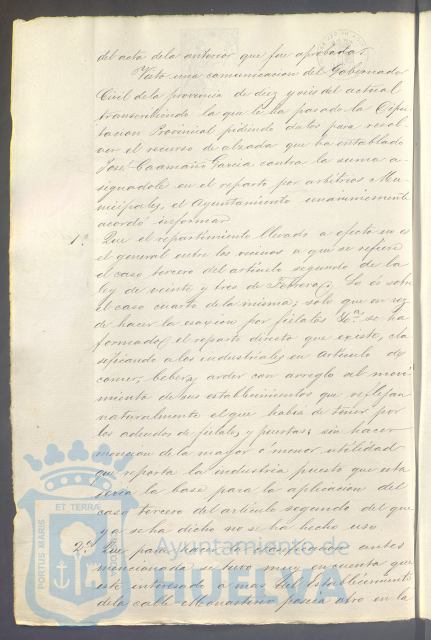 del acta de la anterior que fue aprobada.
Vista una comunicacion del Gobernador
Civil de la provincia de diez y seis del actual
transcribiendo la que le ha pasado la Dipu-
tacion Provincial pidiendo datos para resol-
ver el recurso de alzada que ha entablado
José Caamaño Garcia contra la suma a-
signadole en el reparto por arbitrios Mu-
nicipales, el Ayuntamiento unanimemente
acordó informar
1.º Que el repartimiento llevado a efecto no es
el general entre los vecinos a que se refiere
el caso tercero del articulo segundo de la
ley de veinte y tres de Febrero, Lo es sobre
el caso cuarto de la misma; solo que en vez
de hacer la exaccion por fielatos se ha
formado el reparto directo que existe, cla
sificando a los industriales en articulo de
comer, beber y arder con arreglo al movi
miento de sus establecimientos que reflejan
naturalmente el que habia de tener por
los adeudos de fielatos y puertas; sin hacer
mencion de la mayor ó menor utilidad
que reporta la industria puesto que esta
seria la base para la aplicacion del
caso tercero del articulo segundo del que
ya se ha dicho no se ha hecho uso
2.º Que para hacer la clasificacion antes
mencionada se tuvo muy en cuenta que
este interesado a mas del Establecimiento
de la calle Monasterio poseia otro en la
ET TERRA
PORTUS MARIS
Ayuntamiento de
HUELVA